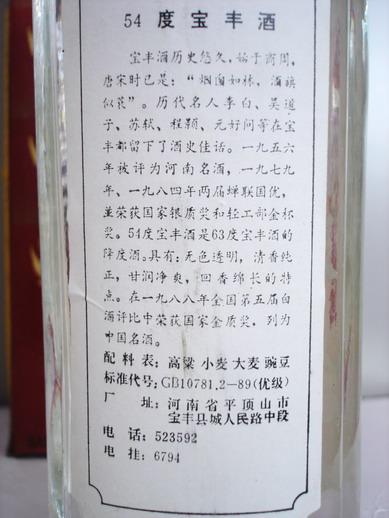 54度宝丰酒
宝丰酒历史悠久，始于商周，
唐宋时已是：“烟囱如林，酒旗
似茯”。历代名人李白、吴道
子、苏轼、程颢、元好问等在宝
丰都留下了酒史佳话。一九五六
年被评为河南名酒，一九七九
年、一九八四年两届蝉联国优，
並荣获国家银质奖和轻工部金杯
奖。54度宝丰酒是63度宝丰酒的
降度酒。具有：无色透明，清香纯
正，甘润净爽，回香绵长的特
点。在一九八八年全国第五届白
酒评比中荣获国家金质奖，列为
中国名酒。
配料表：高粱 小麦 大麦 豌豆
标准代号：GB10781.2-89(优级)
厂址：河南省平顶山市
宝丰县城人民路中段
电话：523592
电挂：6794